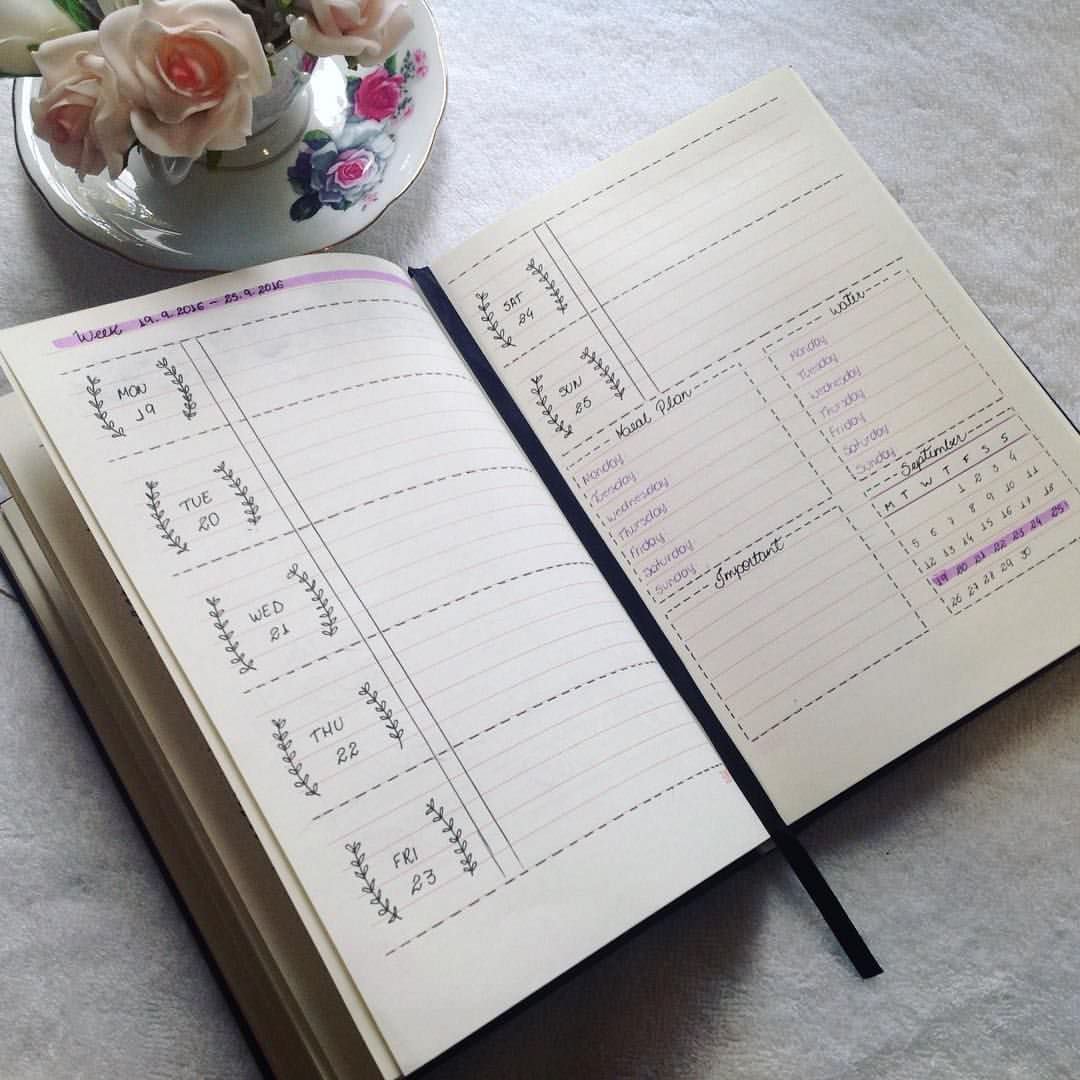 Week 19.9.2016 - 25.9.2016
MON
19
TUE
20
WED
21
THU
22
FRI
23
SAT
24
SUN
25
Meal Plan
Monday
Tuesday
Wednesday
Thursday
Friday
Saturday
Sunday
Important
Water
Monday
Tuesday
Wednesday
Thursday
Friday
Saturday
Sunday
September
M T W T F S S
1 2 3 4
5 6 7 8 9 10 11
12 13 14 15 16 17 18
19 20 21 22 23 24 25
26 27 28 29 30